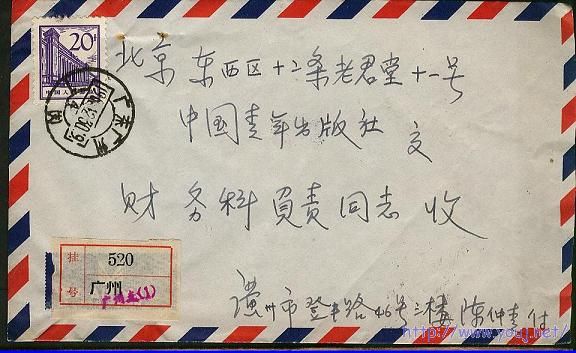 20分
中国人民
广东广州
北京 东西区十二条老君堂十一号
中国青年出版社 交
财务科負责同志 收
挂号
520
广州
广州市登丰路46号三楼 陈仲
付
http://www.youj.net/